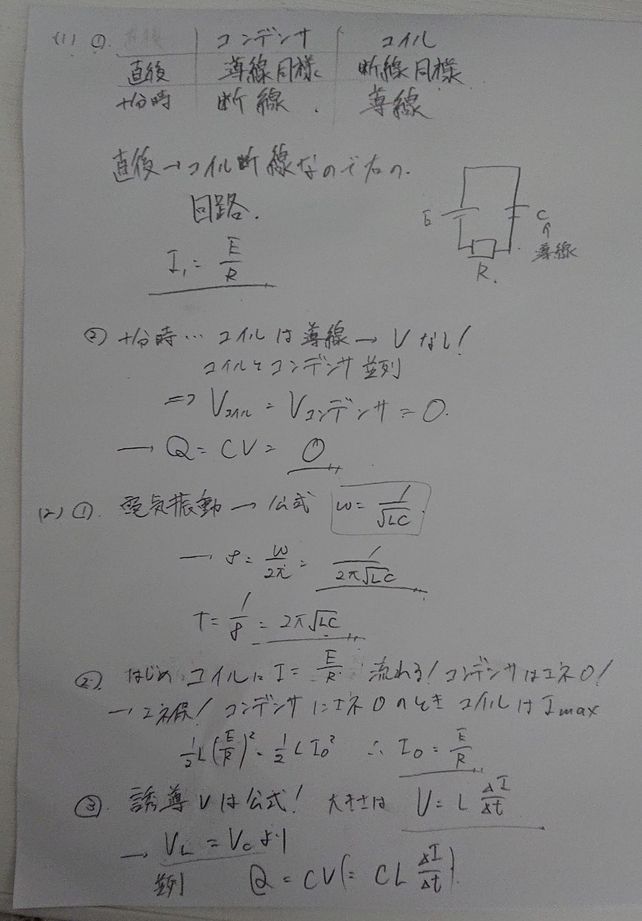 (1) ① コンデンサ コイル
直後 導線同様 断線同様
十分時 断線 導線
直後→コイル断線なので右の
回路.
I₁ = E/R
E C ↑ 導線 R
② 十分時… コイルは導線→Vなし!
コイルとコンデンサ並列
⇒ Vコイル = Vコンデンサ = 0.
→ Q = CV = 0
(2) ①. 電気振動→公式 ω = 1/√LC
→ f = ω/2π = 1/2π√LC
T = 1/f = 2π√LC
② はじめ コイルに I = E/R 流れる! コンデンサはエネ0!
→ エネ保! コンデンサにエネ0のとき コイルは Imax
1/2 L(E/R)² = 1/2 L I₀² ∴ I₀ = E/R
③ 誘導Vは公式! 大きさは V = L ΔI/Δt
→ VL = VC より
並列 Q = CV (= CL ΔI/Δt)